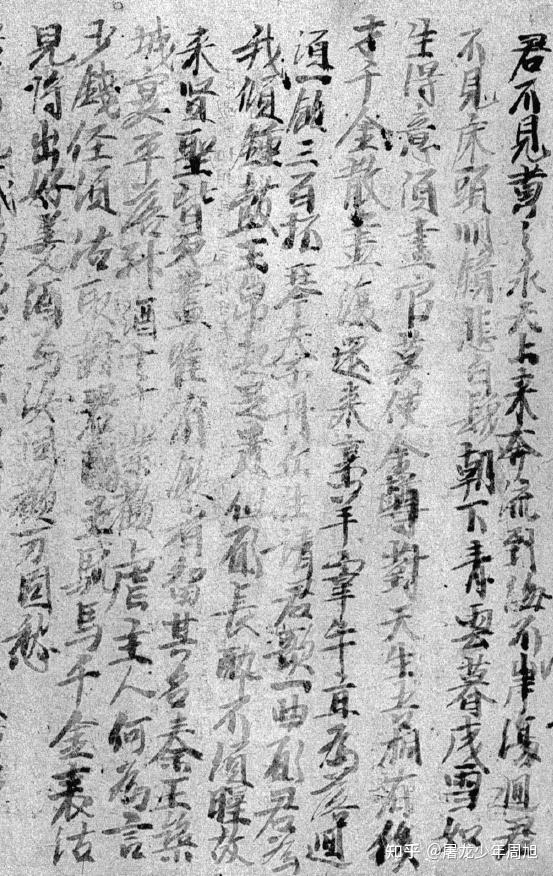 君不見黄之水天上来奔流到海不岸復迴君
不見床頭鏡悲白髮朝下青雲暮成雪如
生得意須盡官莫使金尊對天生吾有俊
才千金散盡復還来烹羊宰牛京為落迴
須一飲三百杯琴夫子丹丘生請君歌一曲願君為
我傾鍾鼓玉帛豈足貴但願長醉不須醒故
来賢聖皆死盡唯有飲者留其名秦王築
城宴平落斗酒十千歡虐主人何為言
少錢徑須沽取對君酌五馬千金裘沽
見將出好美酒与汝同歡万愁
知乎 @屠龙少年周旭